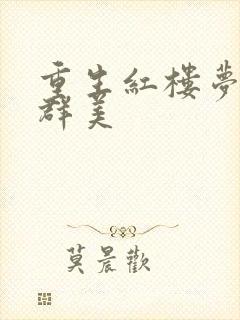 重生紅樓夢
群美
莫晨歡